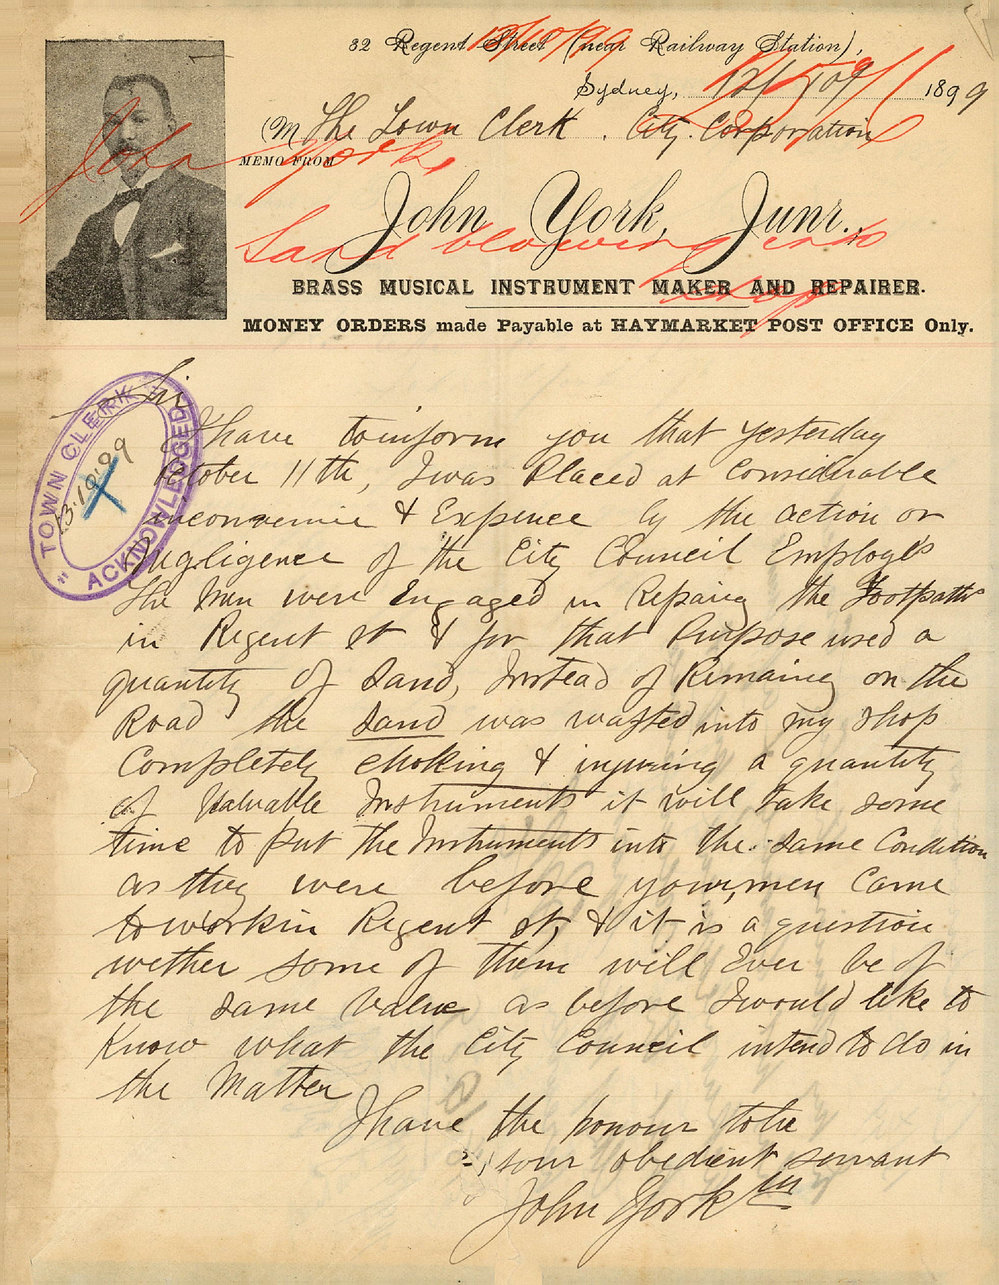 32 Regent Street (near Railway Station),
12/10/99
Sydney, 12/10/ 1899
(M The Town Clerk. City Corporation
John York
MEMO FROM
John York, Junr.,
Sand blowing into
shop
BRASS MUSICAL INSTRUMENT MAKER AND REPAIRER.
MONEY ORDERS made Payable at HAYMARKET POST OFFICE Only.
Sir
"TOWN CLERK"
ACKNOWLEDGED
13.10.99
I have to inform you that yesterday
October 11th, I was Placed at Considerable
inconvenie & Expence by the action or
Negligence of the City Council Employe's
The Men were Engaged in Repairig the Footpaths
in Regent St & for that Purpose used a
quantity of Sand, Instead of Remainig on the
Road the Sand was wafted into my shop
Completely choking & injuring a quantity
of Valuable Instruments it will take some
time to put the Instruments into the same Condition
as they were before your men Came
to work in Regent St, & it is a question
wether some of them will Ever be of
the same value as before I would like to
Know what the City Council intend to do in
the Matter
I have the honour to be
your obedient servant
John York Jn